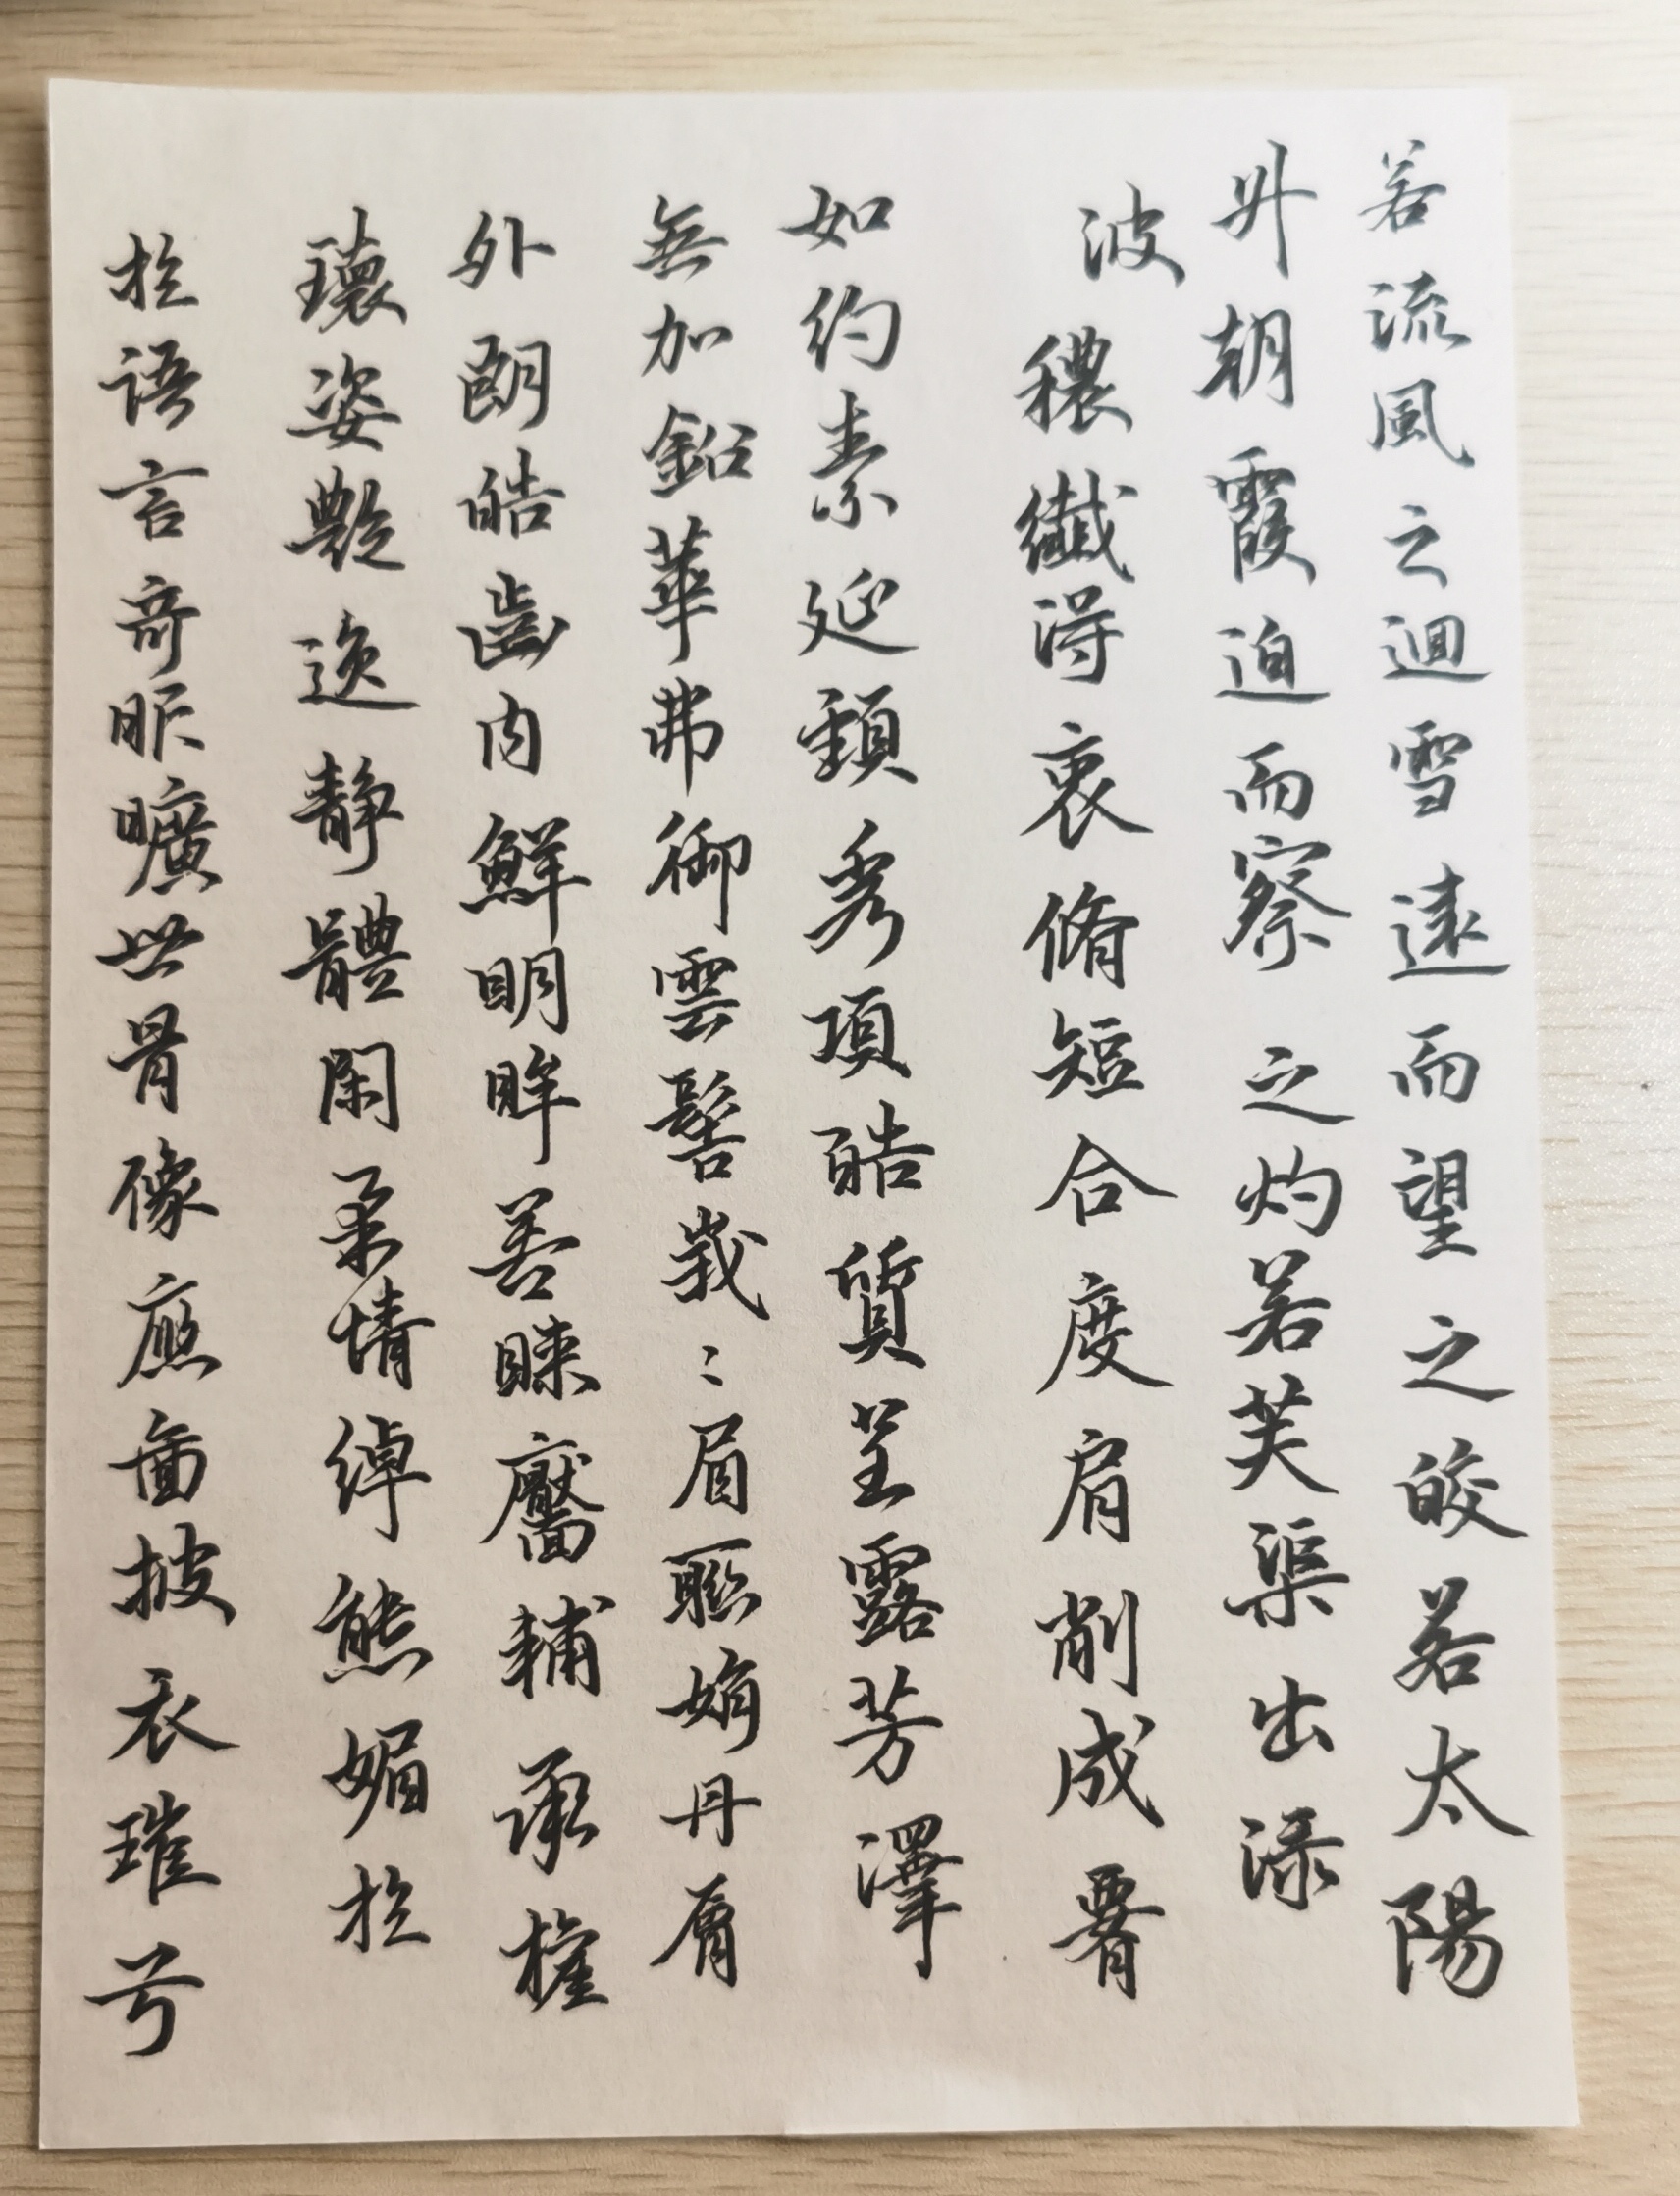 若流風之迴雪遠而望之皎若太陽
升朝霞迫而察之灼若芙渠出渌
波穠纖得衷脩短合度肩削成署
如約素延頸秀項皓質呈露芳澤
無加鉛華弗御雲髻峩〻眉聯娟丹脣
外朗皓齒内鮮明眸善睞靨輔承權
瓌姿豔逸靜體閑柔情綽態媚於
於語言奇眤曠世骨像應啚披衣璀兮